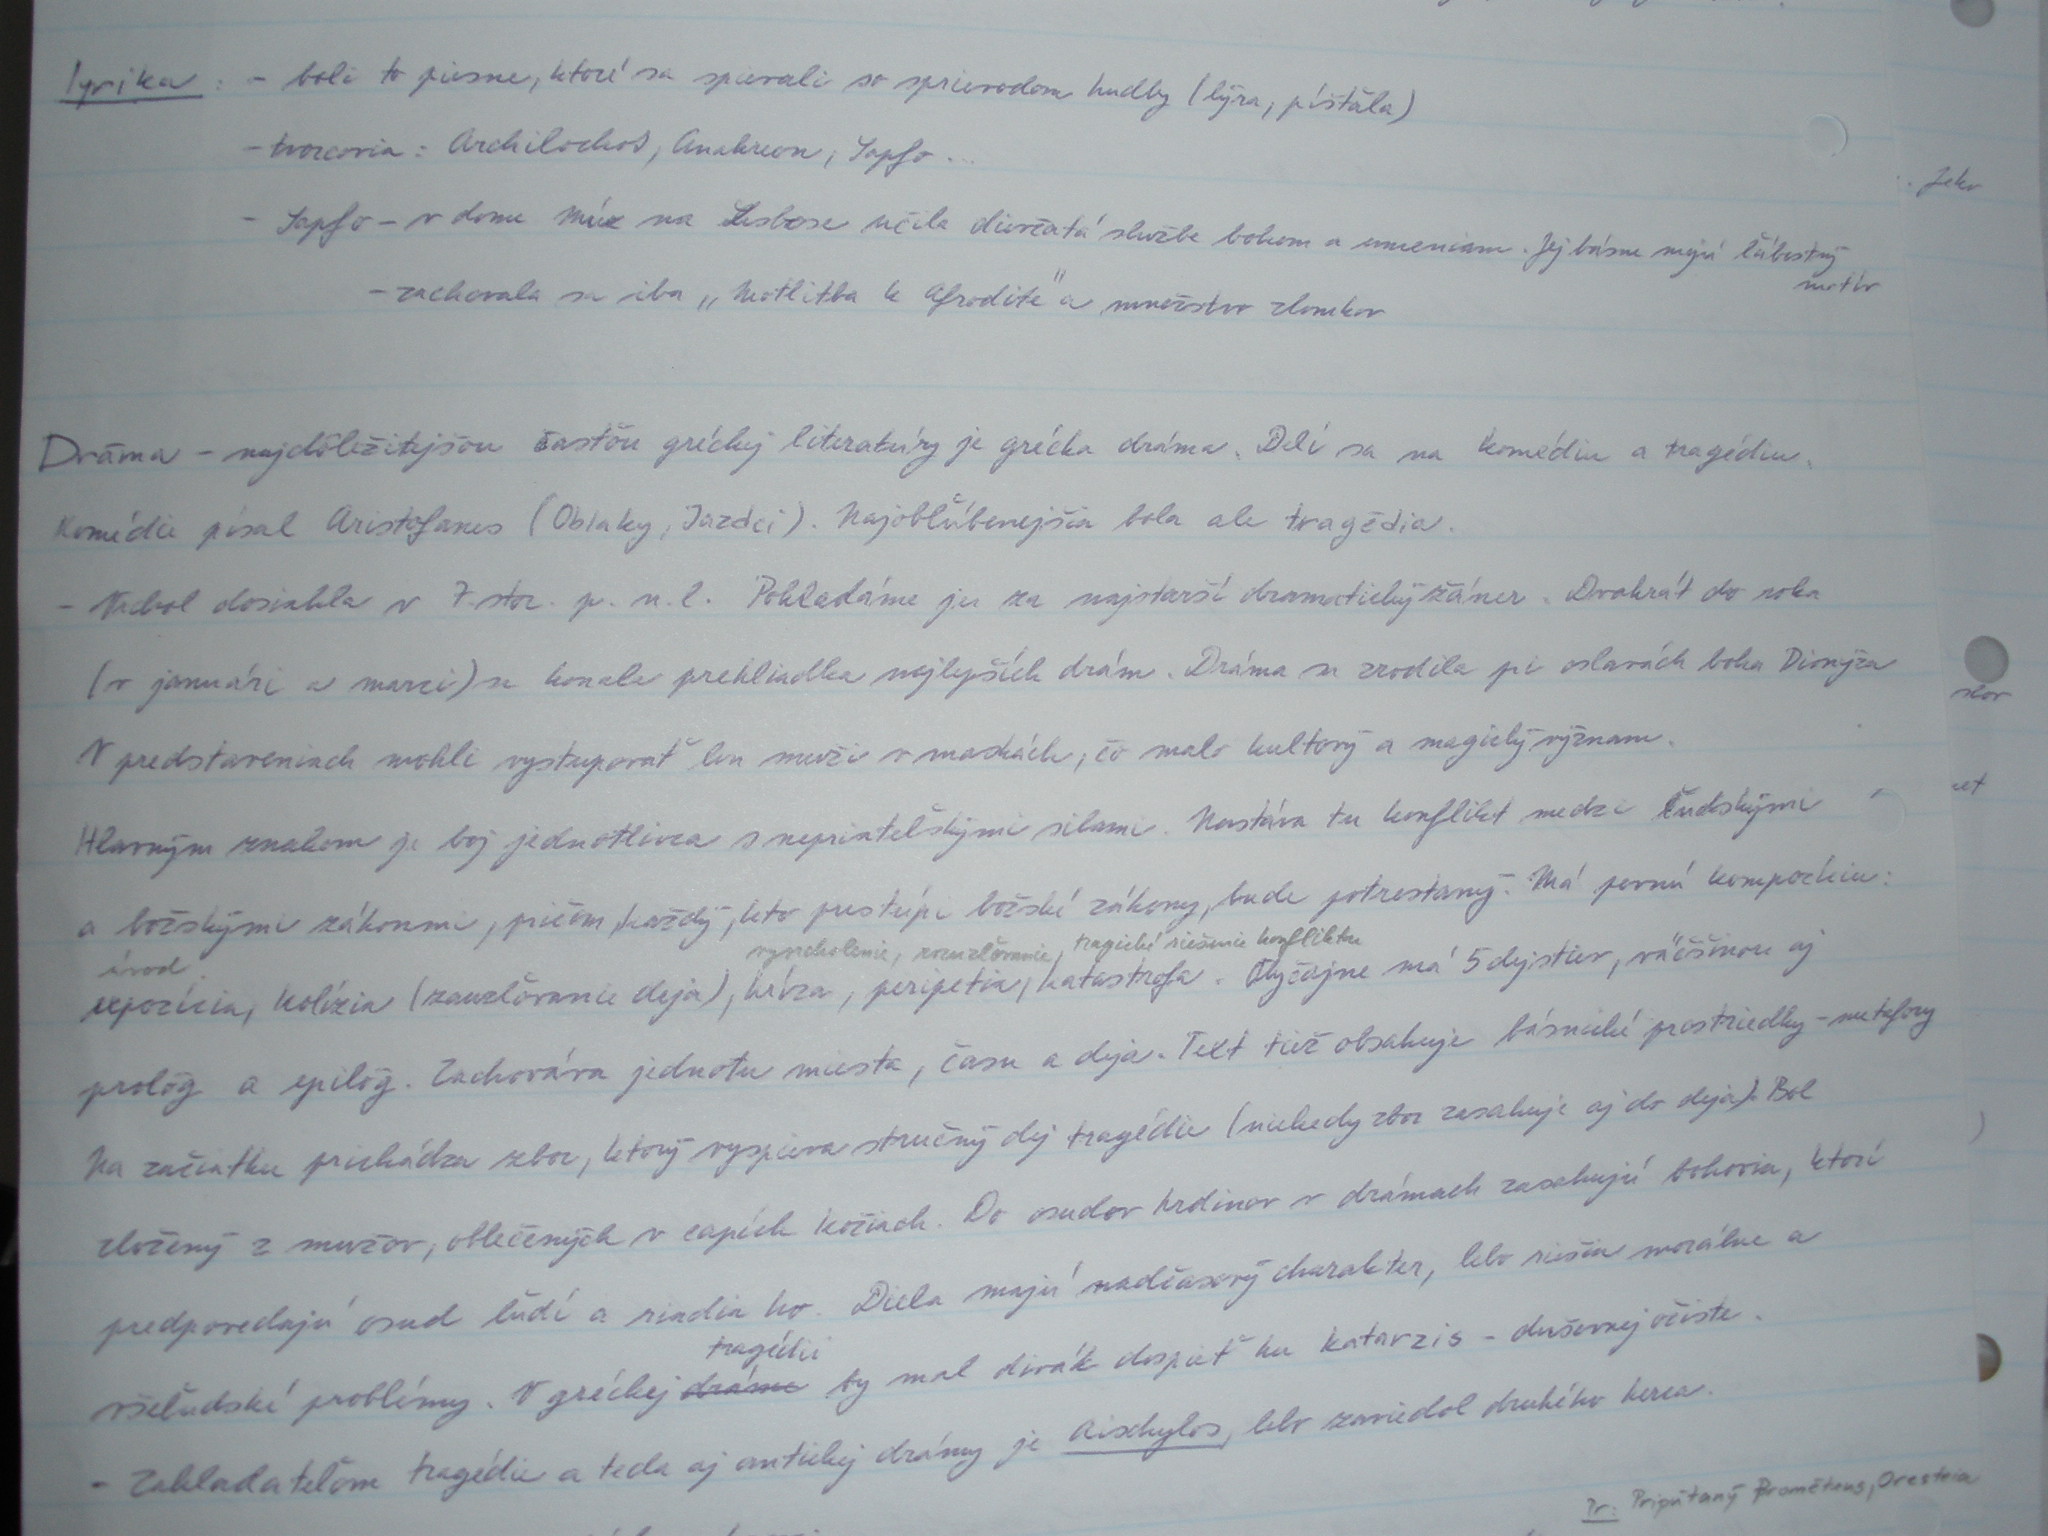 lyrika : - boli to piesne, ktoré sa spievali so sprievodom hudby (lýra, píšťala)
- tvorcovia : Archilochos, Anakreon, Sapfo ...
Jeho
- Sapfo - v dome Múz na Lesbose učila dievčatá službe bohom a umeniam. Jej básne majú ľúbostný
motív
- zachovala sa iba "Motlitba k Afrodite" a množstvo zlomkov
Dráma - najdôležitejšou časťou gréckej literatúry je grécka dráma. Delí sa na komédiu a tragédiu.
Komédie písal Aristofanes (Oblaky, Jazdci). Najobľúbenejšia bola ale tragédia.
- Vrchol dosiahla v 7. stor. p. n. l. Pokladáme ju za najstarší dramatický žáner. Dvakrát do roka
(v januári a marci) sa konala prehliadka najlepších drám. Dráma sa zrodila pri oslavách boha Dionýza
slov
V predstaveniach mohli vystupovať len muži v maskách, čo malo kultový a magický význam.
Hlavným znakom je boj jednotlivca s nepriateľskými silami. Nastáva tu konflikt medzi ľudskými
a božskými zákonmi, pričom každý, kto prestúpi božské zákony, bude potrestaný. Má pevnú kompozíciu:
úvod vyvrcholenie, rozuzľovanie, tragické riešenie konfliktu
expozícia, kolízia (zauzľovanie deja), kríza, peripetia, katastrofa. Obyčajne má 5 dejstiev, väčšinou aj
prológ a epilóg. Zachováva jednotu miesta, času a deja. Text tiež obsahuje básnické prostriedky - metafory
Na začiatku prichádza zbor, ktorý vyspieva stručný dej tragédie (niekedy zbor zasahuje aj do deja). Bol
zložený z mužov, oblečených v capích kožiach. Do osudov hrdinov v drámach zasahujú bohovia, ktorí
predpovedajú osud ľudí a riadia ho. Diela majú nadčasový charakter, lebo riešia morálne a
tragédii
všeľudské problémy. V gréckej dráme by mal divák dospieť ku katarzis - duševnej očiste.
- Zakladateľom tragédie a teda aj antickej drámy je Aischylos, lebo zaviedol druhého herca.
Pr: Pripútaný Prométeus, Oresteia